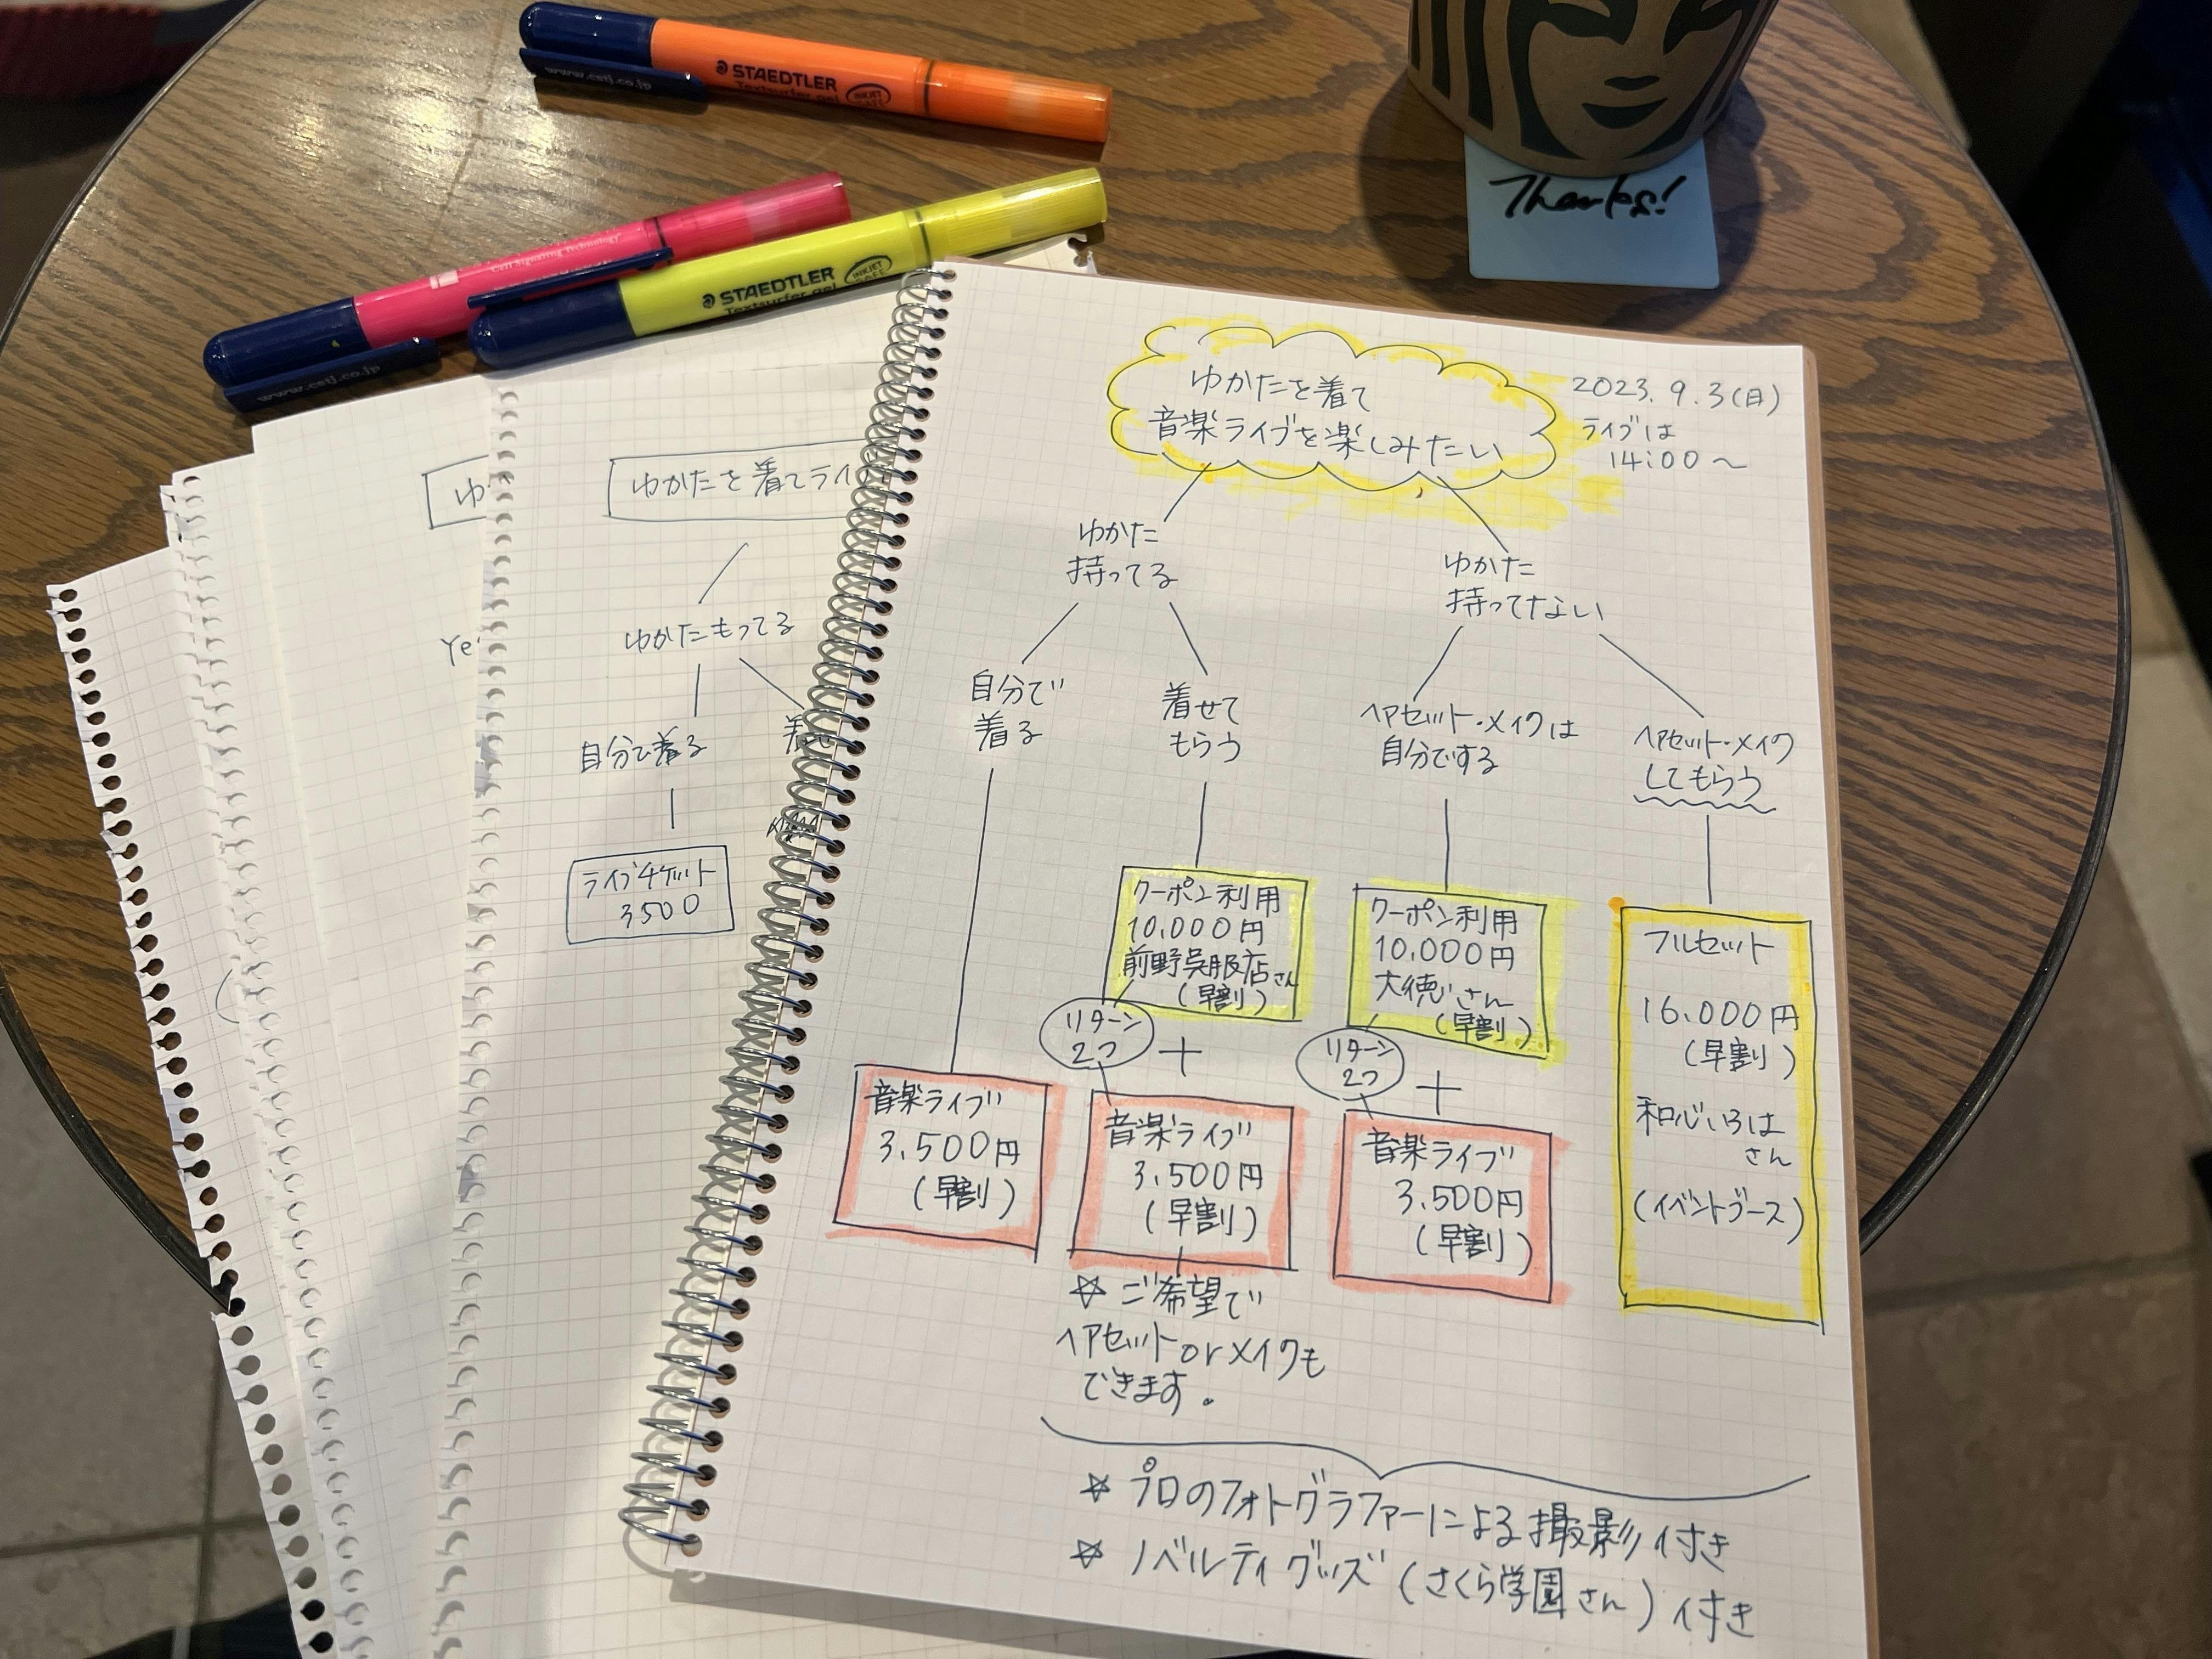 STAEDTLER
Textsurfer gel
INKJET SAFE
www.cstj.co.jp
Cell Signaling Technology
www.cstj.co.jp
STAEDTLER
Textsurfer gel
INKJET SAFE
Thanks!
ゆかたを着て
音楽ライブを楽しみたい
2023.9.3(日)
ライブは
14:00〜
ゆかた
持ってる
ゆかた
持ってない
自分で
着る
着せて
もらう
ヘアセット・メイクは
自分でする
ヘアセット・メイク
してもらう
クーポン利用
10,000円
前野呉服店さん
(早割)
クーポン利用
10,000円
大徳さん
(早割)
フルセット
16,000円
(早割)
和心いろは
さん
(イベントブース)
リターン
2つ
+
リターン
2つ
+
音楽ライブ
3,500円
(早割)
音楽ライブ
3,500円
(早割)
音楽ライブ
3,500円
(早割)
☆ご希望で
ヘアセットorメイクも
できます。
☆プロのフォトグラファーによる撮影付き
☆ノベルティグッズ(さくら学園さん)付き
ゆかたを着てライ
ゆかたもってる
自分で着る
着
ライブチケット
3500
ゆ
Ye